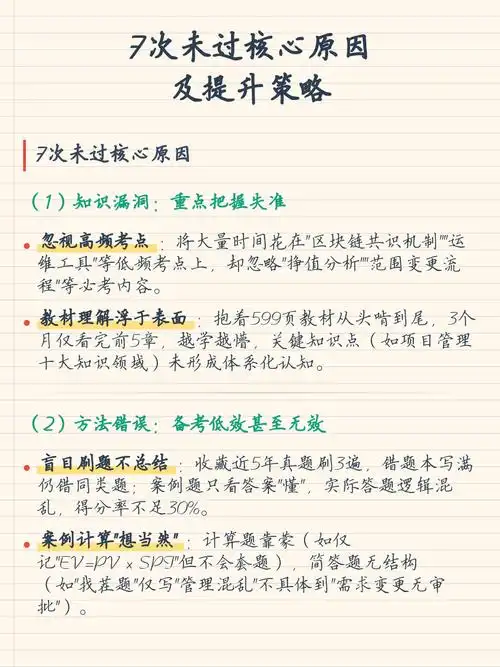 7次未过核心原因
及提升策略
7次未过核心原因
（1）知识漏洞：重点把握失准
忽视高频考点：将大量时间花在"区块链共识机制""运
维工具"等低频考点上，却忽略"挣值分析""范围变更流
程"等必考内容。
教材理解浮于表面：抱着599页教材从头啃到尾，3个
月仅看完前5章，越学越懵，关键知识点（如项目管理
十大知识领域）未形成体系化认知。
（2）方法错误：备考低效甚至无效
盲目刷题不总结：收藏近5年真题刷3遍，错题本写满
仍错同类题；案例题只看答案"懂"，实际答题逻辑混
乱，得分率不足30%。
案例计算"想当然"：计算题靠蒙（如仅
记"EV=PV×SPI"但不会套题），简答题无结构
（如"找茬题"仅写"管理混乱"不具体到"需求变更无审
批"）。